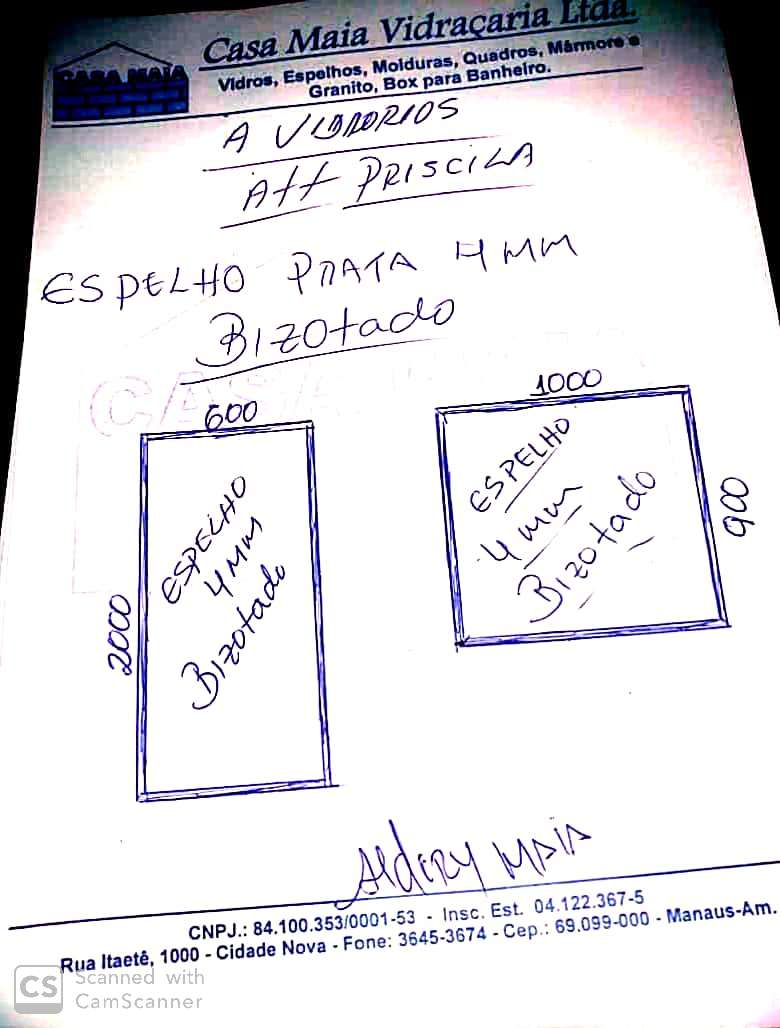 Casa Maia Vidraçaria Ltda.
CASA MAIA
Vidros, Espelhos, Molduras, Quadros, Mármore e
Granito, Box para Banheiro.
A VIDRORIOS
Att PRISCILA
ESPELHO PRATA 4MM
Bizotado
600
ESPELHO
4MM
Bizotado
2000
1000
ESPELHO
4mm
Bizotado
900
Aldery MAIA
CNPJ.: 84.100.353/0001-53 - Insc. Est. 04.122.367-5
Rua Itaetê, 1000 - Cidade Nova - Fone: 3645-3674 - Cep.: 69.099-000 - Manaus-Am.
CS Scanned with
CamScanner